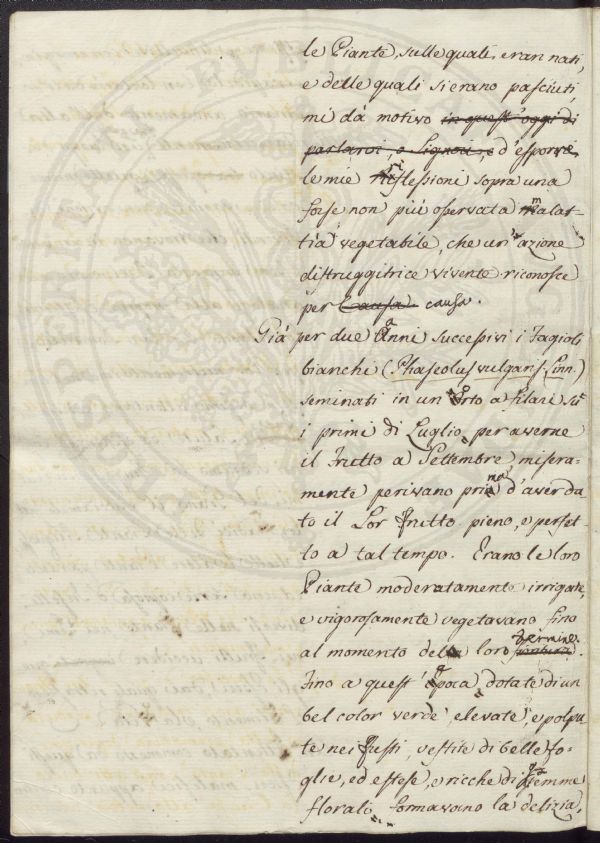 le Piante, sulle quali eran nati,
e delle quali si erano pasciuti,
mi dà motivo in quest' oggi di
parlarvi, o Signori, e d'esporre
le mie riflessioni sopra una
forse non più osservata malat-
tia vegetabile, che un'azione
distruggitrice vivente riconosce
per causa causa.
Già per due anni successivi i Fagioli
bianchi (Phaseolus vulgaris Linn.)
seminati in un Orto a filari su
i primi di Luglio per averne
il frutto a Settembre, misera-
mente perivano prima d'aver da-
to il Lor frutto pieno, e perfet-
to a tal tempo. Erano le loro
Piante moderatamente irrigate,
e vigorosamente vegetavano fino
al momento del loro termine.
Fino a quest' epoca dotate di un
bel color verde, elevate, e polpu-
te nei fusti, vestite di belle fo-
glie, ed estese, e ricche di gemme
florali formavano la delizia,